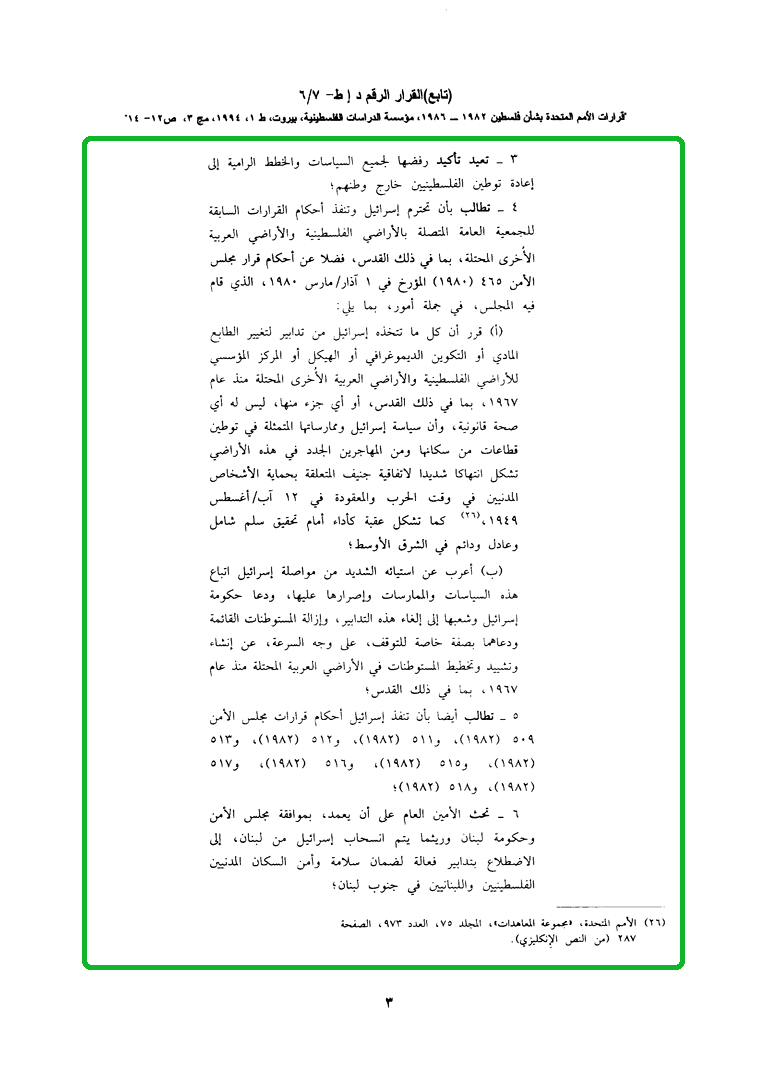 (تابع)القرار الرقم د إ ط- ٦/٧
"قرارات الأمم المتحدة بشأن فلسطين ١٩٨٢ ــ ١٩٨٦، مؤسسة الدراسات الفلسطينية، بيروت، ط ١، ١٩٩٤، مج ٣، ص١٢- ١٤"
٣ ــ تعيد تأكيد رفضها لجميع السياسات والخطط الرامية إلى
إعادة توطين الفلسطينيين خارج وطنهم؛
٤ ــ تطالب بأن تحترم إسرائيل وتنفذ أحكام القرارات السابقة
للجمعية العامة المتصلة بالأراضي الفلسطينية والأراضي العربية
الأُخرى المحتلة، بما في ذلك القدس، فضلا عن أحكام قرار مجلس
الأمن ٤٦٥ (١٩٨٠) المؤرخ في ١ آذار/مارس ١٩٨٠، الذي قام
فيه المجلس، في جملة أمور، بما يلي:
(أ) قرر أن كل ما تتخذه إسرائيل من تدابير لتغيير الطابع
المادي أو التكوين الديموغرافي أو الهيكل أو المركز المؤسسي
للأراضي الفلسطينية والأراضي العربية الأُخرى المحتلة منذ عام
١٩٦٧، بما في ذلك القدس، أو أي جزء منها، ليس له أي
صحة قانونية، وأن سياسة إسرائيل وممارساتها المتمثلة في توطين
قطاعات من سكانها ومن المهاجرين الجدد في هذه الأراضي
تشكل انتهاكا شديدا لاتفاقية جنيف المتعلقة بحماية الأشخاص
المدنيين في وقت الحرب والمعقودة في ١٢ آب/أغسطس
١٩٤٩،(٢٦) كما تشكل عقبة كأداء أمام تحقيق سلم شامل
وعادل ودائم في الشرق الأوسط؛
(ب) أعرب عن استيائه الشديد من مواصلة إسرائيل اتباع
هذه السياسات والممارسات وإصرارها عليها، ودعا حكومة
إسرائيل وشعبها إلى إلغاء هذه التدابير، وإزالة المستوطنات القائمة
ودعاهما بصفة خاصة للتوقف، على وجه السرعة، عن إنشاء
وتشييد وتخطيط المستوطنات في الأراضي العربية المحتلة منذ عام
١٩٦٧، بما في ذلك القدس؛
٥ ــ تطالب أيضا بأن تنفذ إسرائيل أحكام قرارات مجلس الأمن
٥٠٩ (١٩٨٢)، و٥١١ (١٩٨٢)، و٥١٢ (١٩٨٢)، و٥١٣
(١٩٨٢)، و٥١٥ (١٩٨٢)، و٥١٦ (١٩٨٢)، و٥١٧
(١٩٨٢)، و٥١٨ (١٩٨٢)؛
٦ ــ تحث الأمين العام على أن يعمد، بموافقة مجلس الأمن
وحكومة لبنان وريثما يتم انسحاب إسرائيل من لبنان، إلى
الاضطلاع بتدابير فعالة لضمان سلامة وأمن السكان المدنيين
الفلسطينيين واللبنانيين في جنوب لبنان؛
(٢٦) الأمم المتحدة، «مجموعة المعاهدات»، المجلد ٧٥، العدد ٩٧٣، الصفحة
٢٨٧ (من النص الإنكليزي).
٣